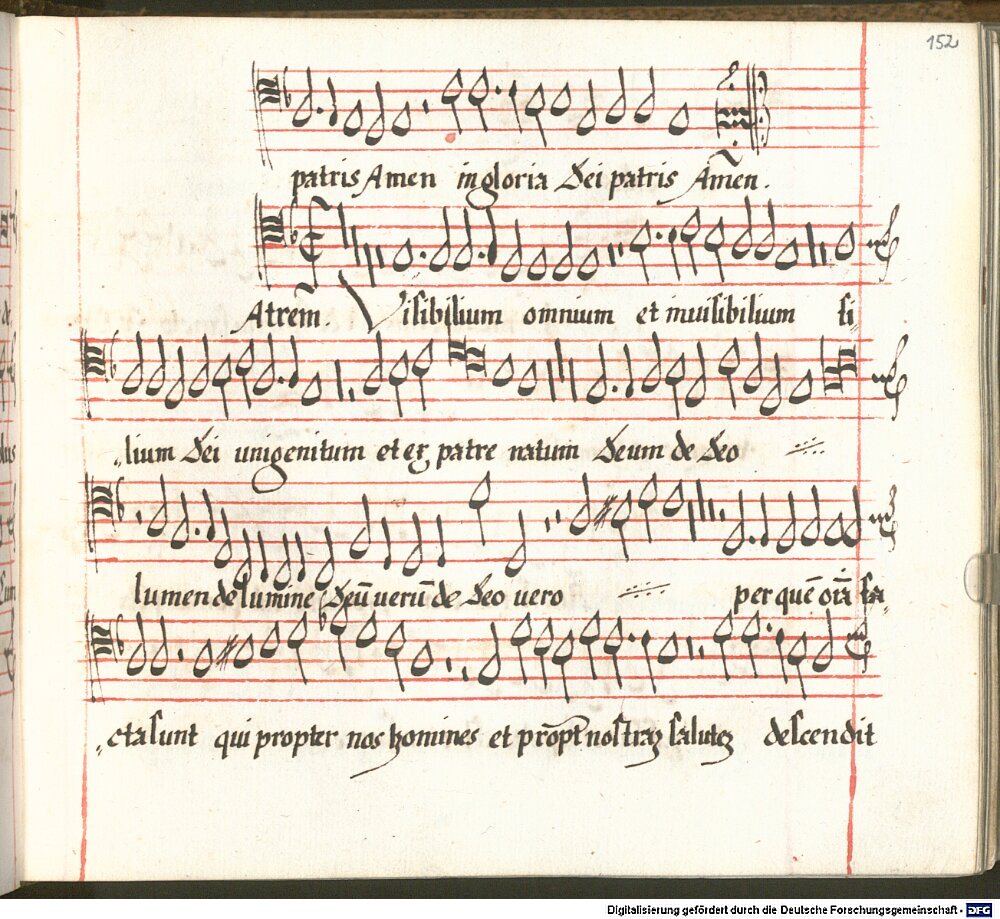 152
patris Amen in gloria Dei patris Amēn.
Atrem̄. Visibilium omnium et inuisibilium fi
„lium Dei unigenitum et ex patre natum Deum de Deo
lumen de lumine Deū uerū de Deo uero per quē oīa fa„
„cta sunt qui propter nos homines et prop̄t nostraʒ saluteʒ descendit
Digitalisierung gefördert durch die Deutsche Forschungsgemeinschaft - DFG